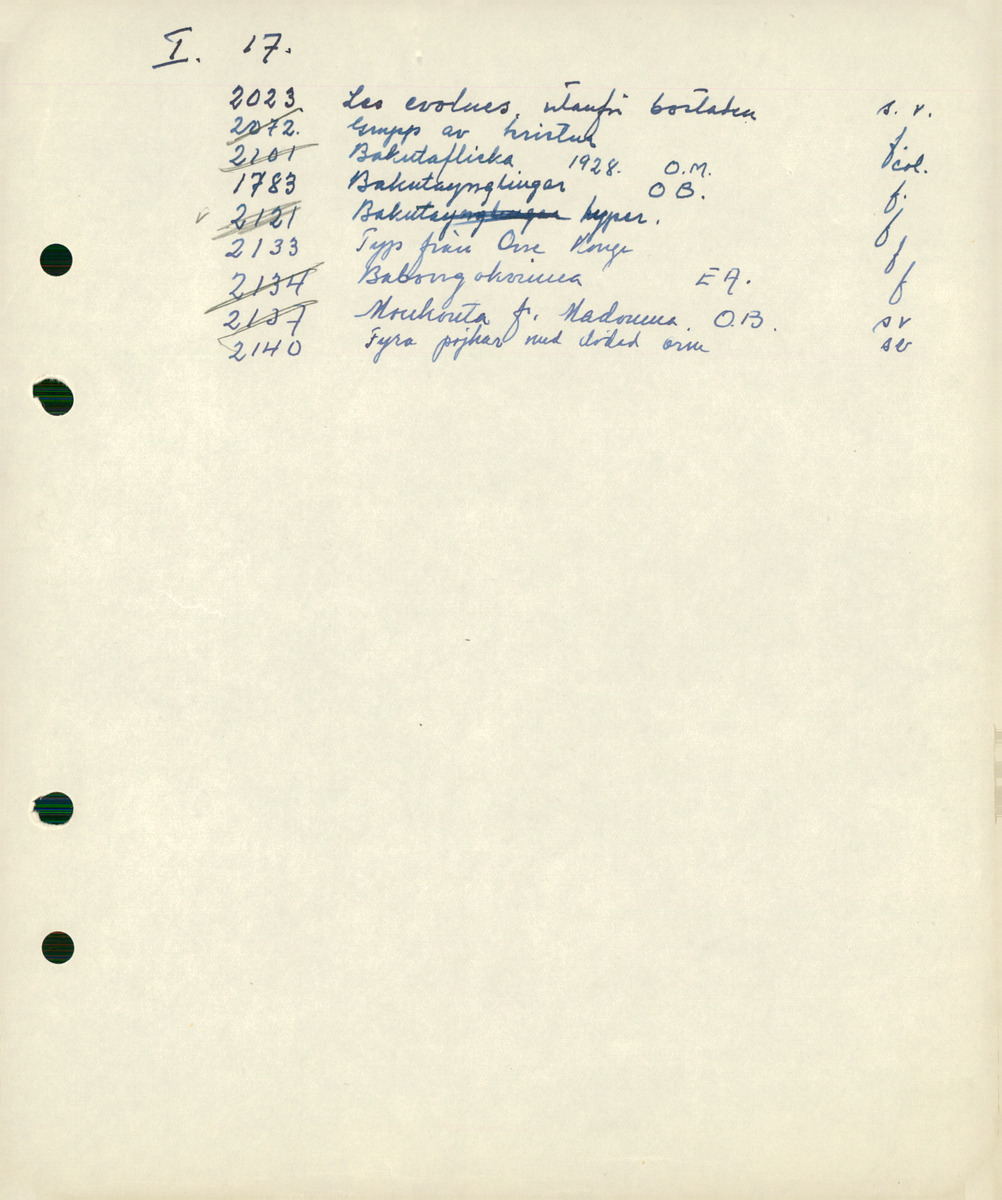 I. 17.
2023 Les evolues, utanför bostaden s. v.
2072. Grupp av kristna f
2101 Bakutaflicka 1928. O.M. col.
1783 Bakutaynglingar O B. f.
2121 Bakutaynglingar hyper. f
2133 Typ från Övre Kongo f
2134 Babongokvinna E A. f
2137 Moukouta fr. Madouma. O.B. sv
2140 Fyra pojkar med dödad orm sv